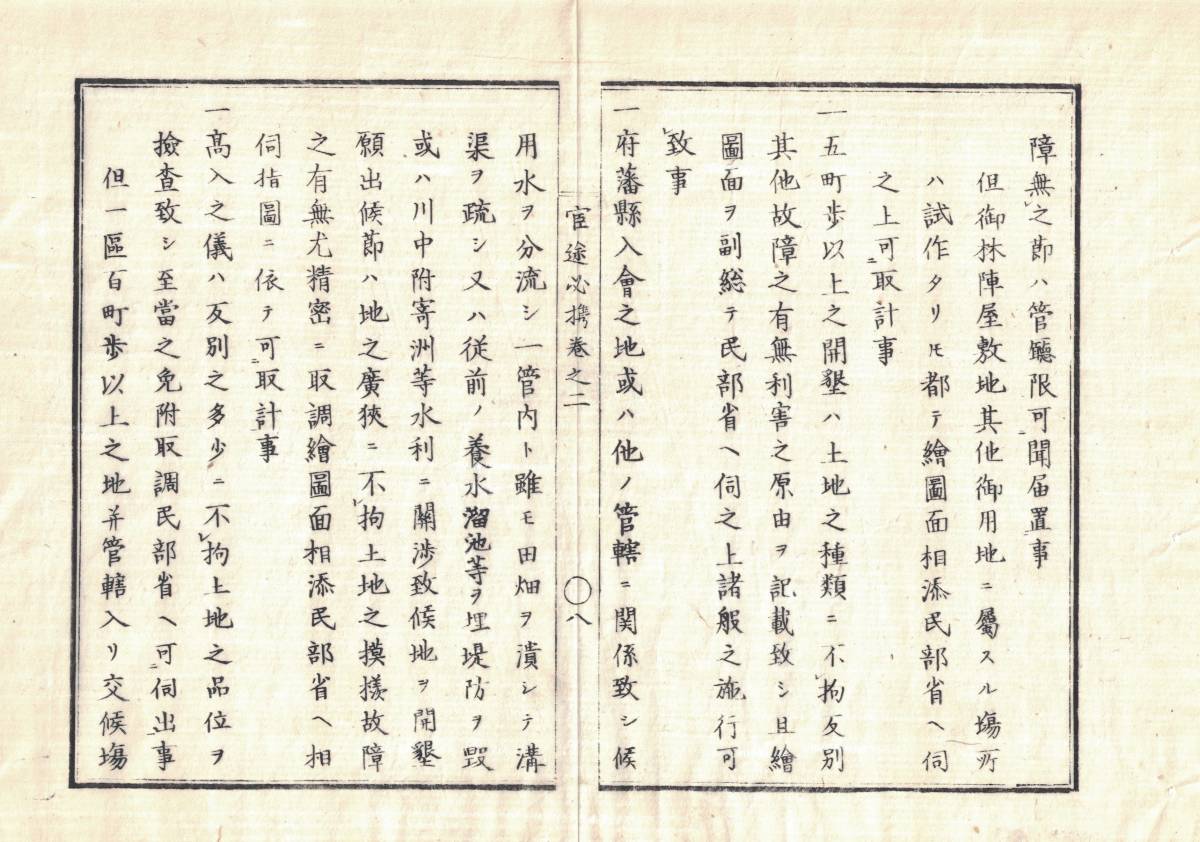 障無之節ハ管廳限可聞届置事
但御林陣屋敷地其他御用地ニ屬スル塲所
ハ試作タリ𪜈都テ繪圖面相添民部省ヘ伺
之上可取計事
一五町歩以上之開墾ハ土地之種類ニ不拘反別
其他故障之有無利害之原由ヲ記載致シ且繪
圖面ヲ副総テ民部省ヘ伺之上諸般之施行可
致事
一府藩縣入會之地或ハ他ノ管轄ニ関係致シ候
官途必携巻之二
〇八
用水ヲ分流シ一管内ト雖モ田畑ヲ潰シテ溝
渠ヲ疏シ又ハ従前ノ養水溜池等ヲ埋堤防ヲ毀
或ハ川中附寄洲等水利ニ關渉致候地ヲ開墾
願出候節ハ地之廣狹ニ不拘土地之摸樣故障
之有無尤精密ニ取調繪圖面相添民部省ヘ相
伺指圖ニ依テ可取計事
一髙入之儀ハ反別之多少ニ不拘土地之品位ヲ
撿査致シ至當之免附取調民部省ヘ可伺出事
但一區百町歩以上之地并管轄入リ交候塲